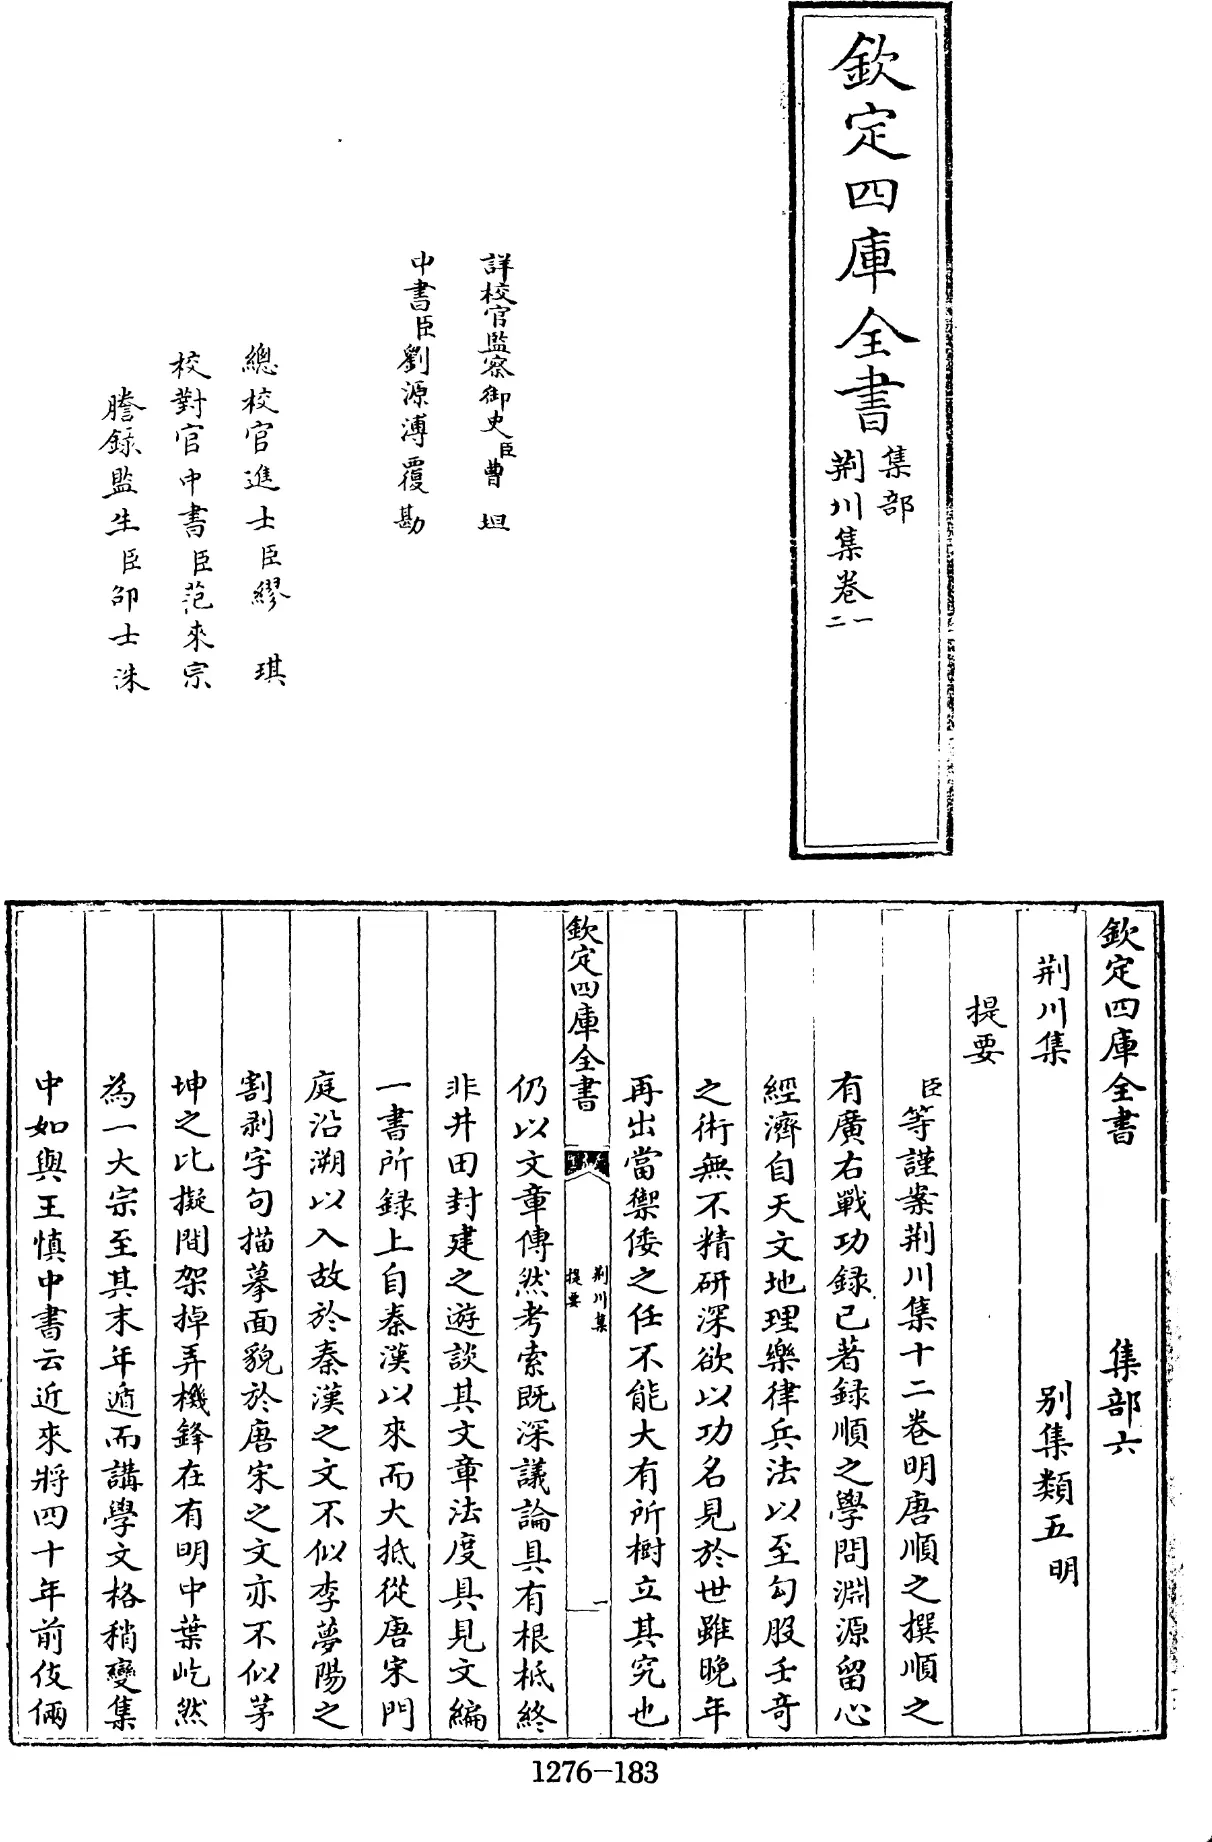 欽定四庫全書
集部
荆川集卷一二
詳校官監察御史臣曹坦
中書臣劉源溥覆勘
總校官進士臣繆琪
校對官中書臣范來宗
謄錄監生臣邵士洙
欽定四庫全書 集部六
荆川集 别集類五 明
提要
臣等謹案荆川集十二卷明唐順之撰順之
有廣右戰功録已著録順之學問淵源留心
經濟自天文地理樂律兵法以至勾股壬奇
之術無不精研深欲以功名見於世雖晩年
再出當禦倭之任不能大有所樹立其究也
欽定四庫全書 荆川集 提要 一
仍以文章傳然考索既深議論具有根柢終
非井田封建之遊談其文章法度具見文編
一書所録上自秦漢以來而大抵從唐宋門
庭沿溯以入故於秦漢之文不似李夢陽之
割剥字句描摹面貌於唐宋之文亦不似茅
坤之比擬間架掉弄機鋒在有明中葉屹然
為一大宗至其末年遁而講學文格稍變集
中如與王慎中書云近來將四十年前伎倆
1276-183